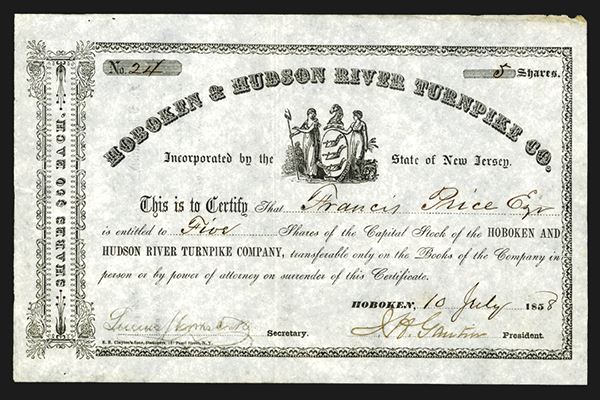 No. 24
5 Shares.
HOBOKEN & HUDSON RIVER TURNPIKE CO.
Incorporated by the State of New Jersey.
This is to Certify That Francis Price Esqr
is entitled to Five Shares of the Capital Stock of the HOBOKEN AND
HUDSON RIVER TURNPIKE COMPANY, transferable only on the Books of the Company in
person or by power of attorney on surrender of this Certificate.
HOBOKEN, 10 July 1858
Secretary.
President.
SHARES $50 EACH.